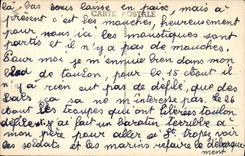 là, bas vous laisse en paix, mais à
présent c'est les mouches, heureusement
CARTE POSTALE
pour nous ici les moustiques sont
partis et il n'y a pas de mouches.
Pour moi je m'ennuie bien dans mon
bled de toulon, pour le 15 août il
n'y a rien eut pas de défilé, que des
bals ça sa ne m'interesse pas. Le 26
dont les troupes qui ont libérées toulon
défilés. J'ai fait un baratin terrible à
mon père pour aller à St tropez voir
les soldats et les marins refaire le débarque
ment